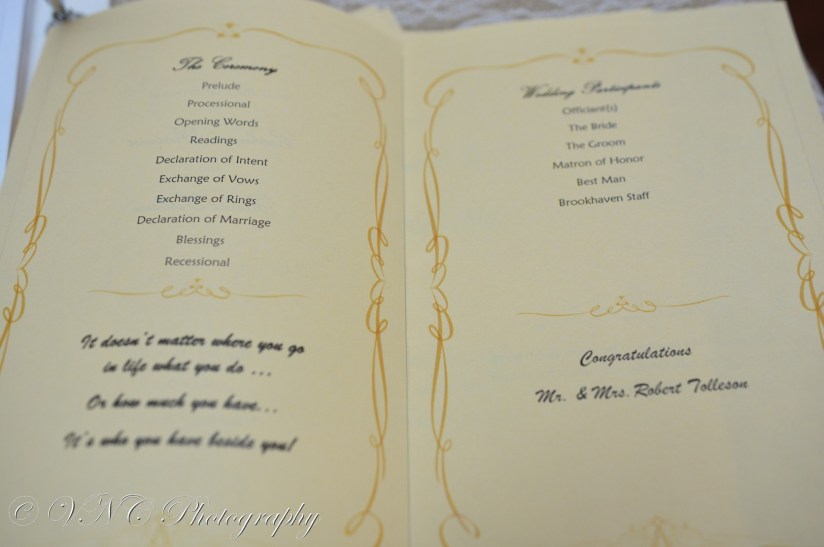 The Ceremony
Prelude
Processional
Opening Words
Readings
Declaration of Intent
Exchange of Vows
Exchange of Rings
Declaration of Marriage
Blessings
Recessional
It doesn't matter where you go
in life what you do ...
Or how much you have...
It's who you have beside you!
Wedding Participants
Officiant(s)
The Bride
The Groom
Matron of Honor
Best Man
Brookhaven Staff
Congratulations
Mr. & Mrs. Robert Tolleson
© VNC Photography